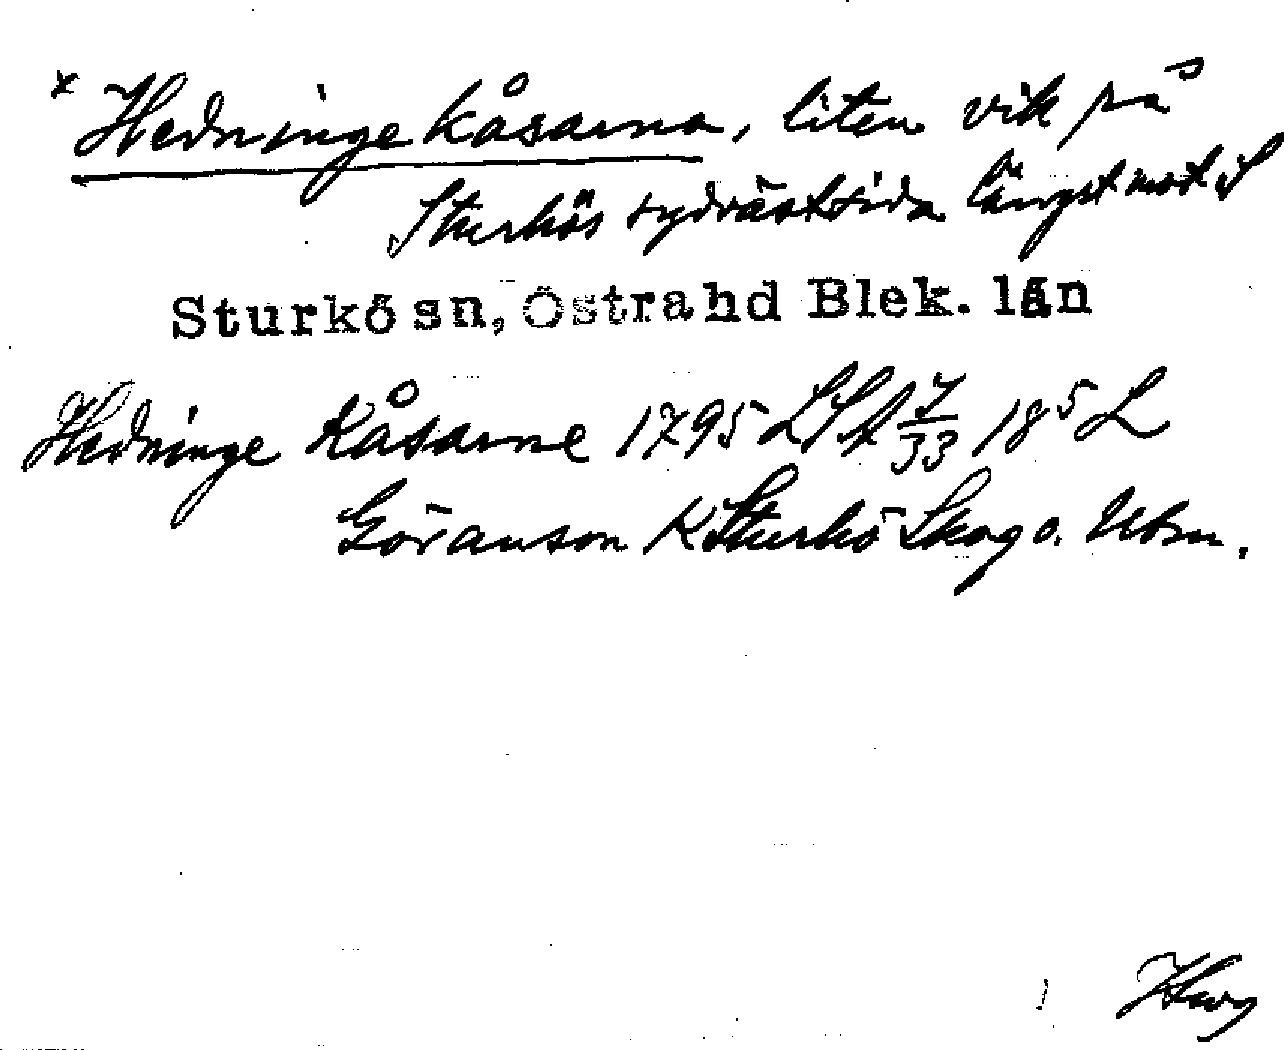 * Hedningekåsarna, liten vik på
Sturkös sydvästsida längst mot S
Sturkö sn, Östra hd Blek. län
Hedninge Kåsarne 1795 LSA 7/33 18⁵ L
Göranson K Sturkö Skog o. Utm.